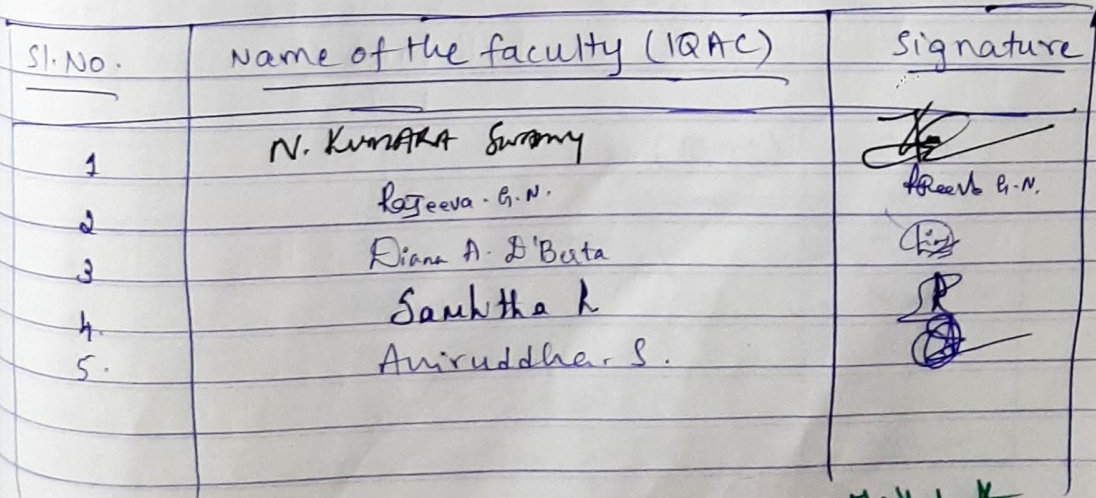 Sl. No. Name of the faculty (IQAC) Signature
1 N. KUMARA Swamy
2 Rajeeva. G. N. G.N.
3 Diana A.
4. Samhitha R
5. Aniruddha. S.